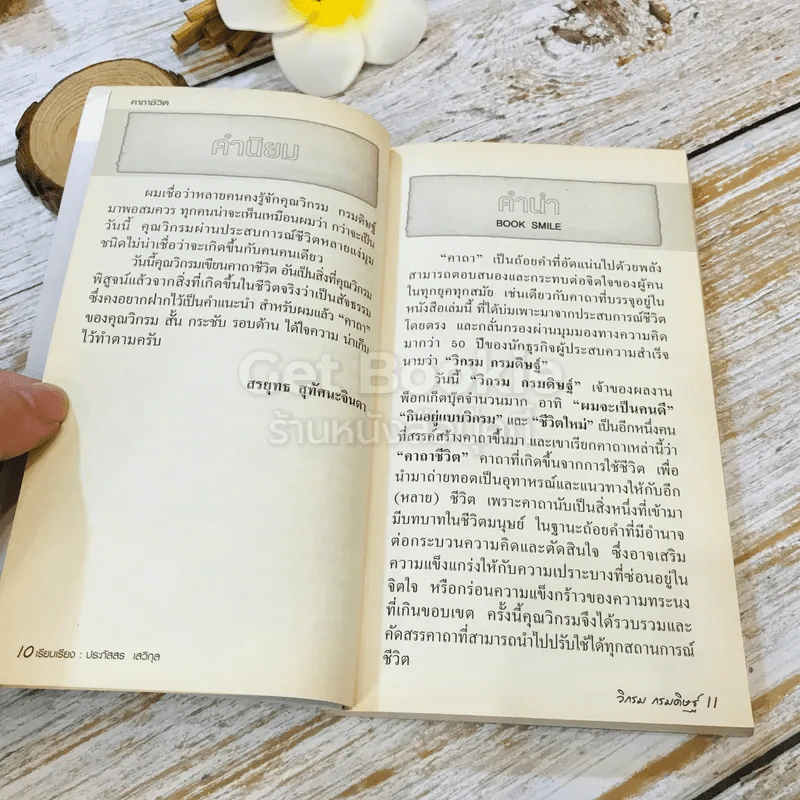 คาถาชีวิต
คำนิยม
ผมเชื่อว่าหลายคนคงรู้จักคุณวิกรม กรมดิษฐ์
มาพอสมควร ทุกคนน่าจะเห็นเหมือนผมว่า กว่าจะเป็น
วันนี้ คุณวิกรมผ่านประสบการณ์ชีวิตหลายแง่มุม
ชนิดไม่น่าเชื่อว่าจะเกิดขึ้นกับคนคนเดียว
วันนี้คุณวิกรมเขียนคาถาชีวิต อันเป็นสิ่งที่คุณวิกรม
พิสูจน์แล้วจากสิ่งที่เกิดขึ้นในชีวิตจริงว่าเป็นสัจธรรม
ซึ่งคงอยากฝากไว้เป็นคำแนะนำ สำหรับผมแล้ว “คาถา”
ของคุณวิกรม สั้น กระชับ รอบด้าน ได้ใจความ น่าเก็บ
ไว้ทำตามครับ
สรยุทธ สุทัศนะจินดา
10 เรียบเรียง : ประภัสสร เสวิกุล
คำนำ
BOOK SMILE
“คาถา” เป็นถ้อยคำที่อัดแน่นไปด้วยพลัง
สามารถตอบสนองและกระทบต่อจิตใจของผู้คน
ในทุกยุคทุกสมัย เช่นเดียวกับคาถาที่บรรจุอยู่ใน
หนังสือเล่มนี้ ที่ได้บ่มเพาะมาจากประสบการณ์ชีวิต
โดยตรง และกลั่นกรองผ่านมุมมองทางความคิด
มากว่า 50 ปีของนักธุรกิจผู้ประสบความสำเร็จ
นามว่า “วิกรม กรมดิษฐ์”
วันนี้ “วิกรม กรมดิษฐ์” เจ้าของผลงาน
พ็อกเก็ตบุ๊คจำนวนมาก อาทิ “ผมจะเป็นคนดี”
“กินอยู่แบบวิกรม” และ “ชีวิตใหม่” เป็นอีกหนึ่งคน
ที่สรรค์สร้างคาถาขึ้นมา และเขาเรียกคาถาเหล่านี้ว่า
“คาถาชีวิต” คาถาที่เกิดขึ้นจากการใช้ชีวิต เพื่อ
นำมาถ่ายทอดเป็นอุทาหรณ์และแนวทางให้กับอีก
(หลาย) ชีวิต เพราะคาถานับเป็นสิ่งหนึ่งที่เข้ามา
มีบทบาทในชีวิตมนุษย์ ในฐานะถ้อยคำที่มีอำนาจ
ต่อกระบวนความคิดและตัดสินใจ ซึ่งอาจเสริม
ความแข็งแกร่งให้กับความเปราะบางที่ซ่อนอยู่ใน
จิตใจ หรือกร่อนความแข็งกร้าวของความทระนง
ที่เกินขอบเขต ครั้งนี้คุณวิกรมจึงได้รวบรวมและ
คัดสรรคาถาที่สามารถนำไปปรับใช้ได้ทุกสถานการณ์
ชีวิต
วิกรม กรมดิษฐ์ 11
Get Bookie